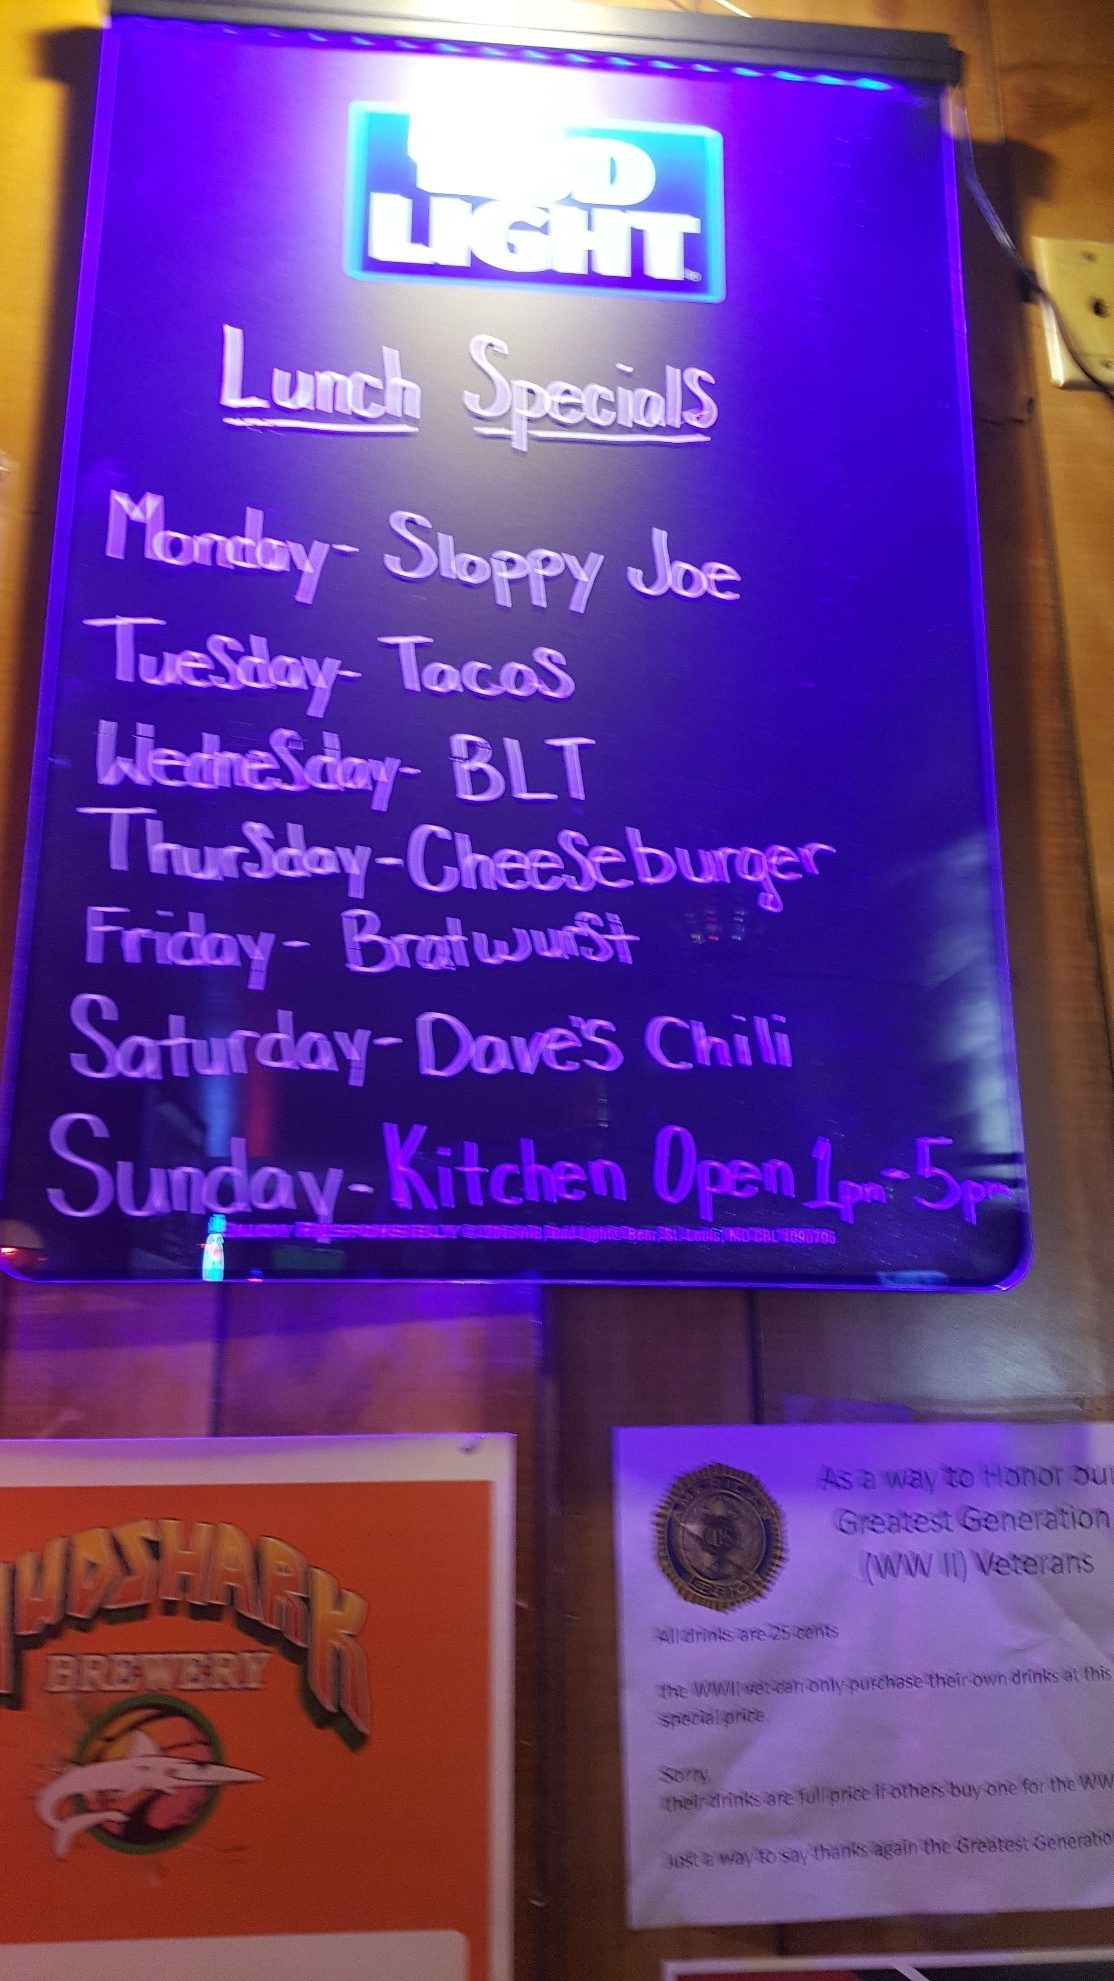 BUD
LIGHT
Lunch Specials
Monday- Sloppy Joe
Tuesday- Tacos
Wednesday- BLT
Thursday-Cheeseburger
Friday- Bratwurst
Saturday- Dave's Chili
Sunday- Kitchen Open 1pm-5pm
RESPONSIBLY Bud Light® Beer, St. Louis, MO
As a way to Honor our
Greatest Generation
(WW II) Veterans
All drinks are 25 cents
The WWII vet can only purchase their own drinks at this
special price.
Sorry,
their drinks are full price if others buy one for the WW
Just a way to say thanks again the Greatest Generatio
BREWERY